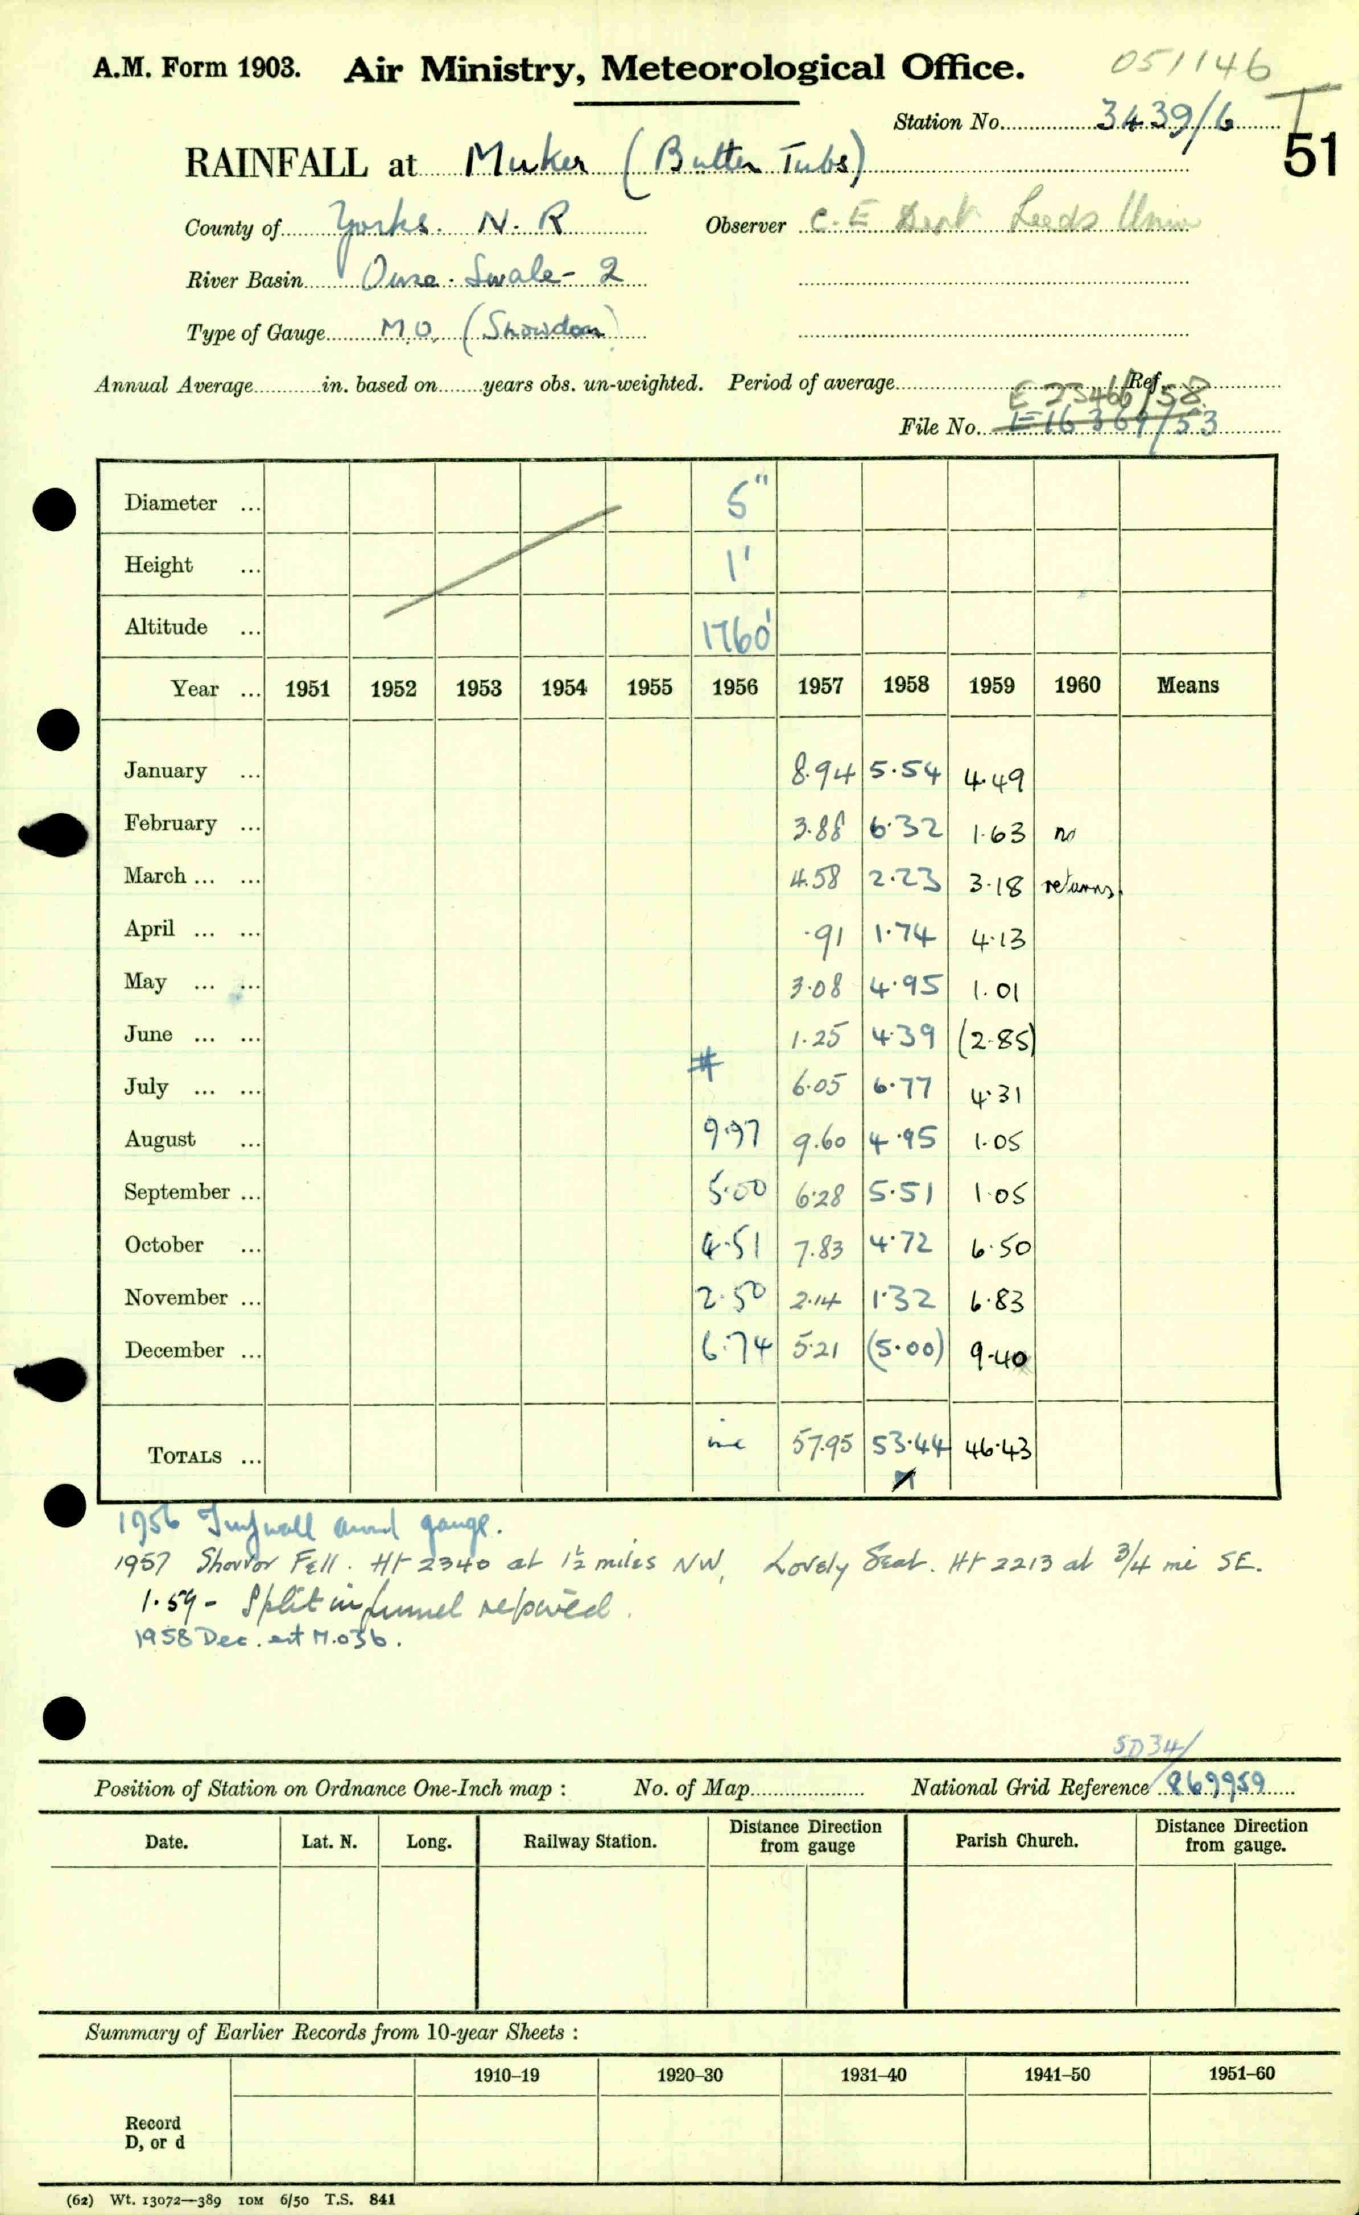 051146
A.M. Form 1903. Air Ministry, Meteorological Office.
Station No. 3439/6 T
51
RAINFALL at Muker (Butter Tubs)
County of Yorks. N. R Observer C. E Dept Leeds Univ
River Basin Ouse. Swale - 2
Type of Gauge M.O. (Snowdon)
Annual Average in. based on years obs. un-weighted. Period of average Ref.
E 23466/58
File No. E16369/53
Diameter ... 5"
Height ... 1'
Altitude ... 1760'
Year ... 1951 1952 1953 1954 1955 1956 1957 1958 1959 1960 Means
January ... 8.94 5.54 4.49
February ... 3.88 6.32 1.63 no
March ... ... 4.58 2.23 3.18 returns.
April ... ... .91 1.74 4.13
May ... ... 3.08 4.95 1.01
June ... ... 1.25 4.39 (2.85)
July ... ... # 6.05 6.77 4.31
August ... 9.97 9.60 4.95 1.05
September ... 5.00 6.28 5.51 1.05
October ... 4.51 7.83 4.72 6.50
November ... 2.50 2.14 1.32 6.83
December ... 6.74 5.21 (5.00) 9.40
TOTALS ... inc 57.95 53.44 46.43
1956 Turfwall round gauge.
1957 Shovror Fell. Ht 2340 at 1½ miles NW, Lovely Seat. Ht 2213 at 3/4 mi SE.
1.59 - Split in funnel repaired.
1958 Dec. est M.O3b.
SD34/
Position of Station on Ordnance One-Inch map : No. of Map National Grid Reference 869959
Date. Lat. N. Long. Railway Station. Distance Direction from gauge Parish Church. Distance Direction from gauge.
Summary of Earlier Records from 10-year Sheets :
1910–19 1920–30 1931–40 1941–50 1951–60
Record
D, or d
(62) Wt. 13072—389 10M 6/50 T.S. 841